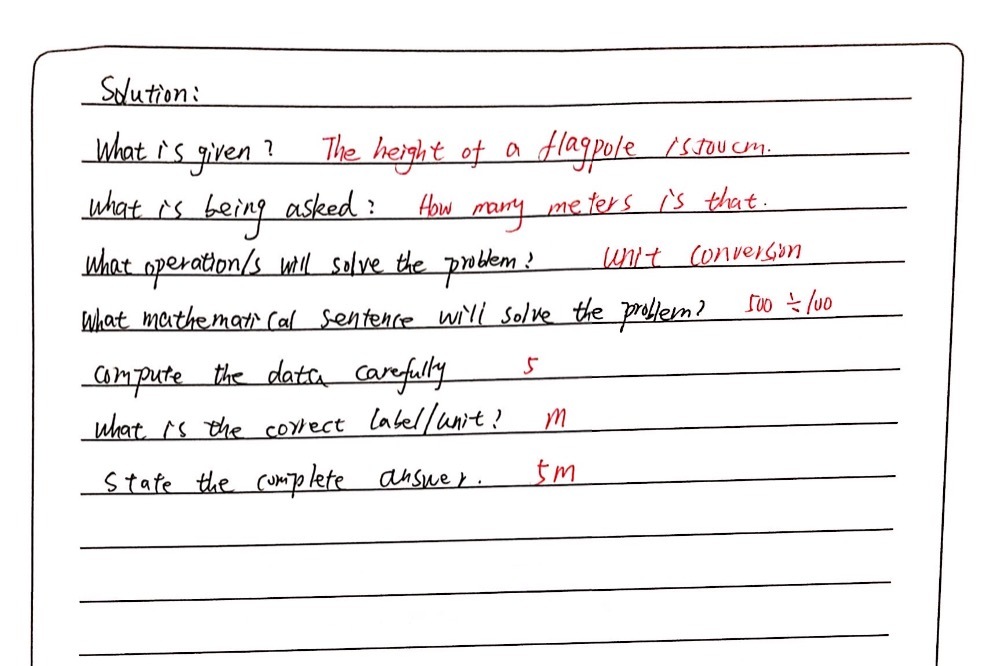 Solution:
What is given? The height of a flagpole is 500cm.
What is being asked? How many meters is that.
What operation/s will solve the problem? unit conversion
What mathematical sentence will solve the problem? 500 ÷ 100
compute the data carefully 5
What is the correct label/unit? m
State the complete answer. 5m